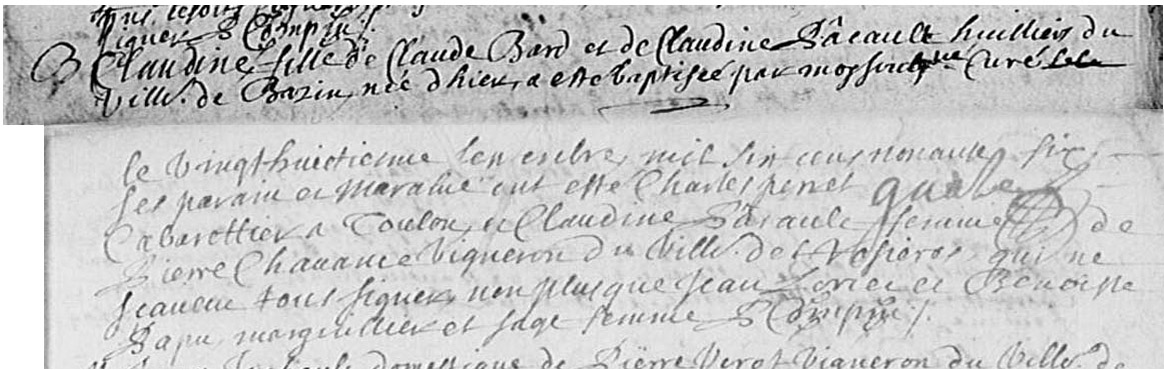 signer
B Claudine fille de Claude Bard et de Claudine Pâcault huilliers du
Vill. de Bazin, née d'hier, a esté baptisée par moy curé
le vingthuictieme mil six cens nonante six
ses parain et maraine ont esté Charles perret
Cabarettier a Toulon, et Claudine Pâcault femme de
Pierre Chavance Vigneron du Vill. de Rosieres qui ne
scavent tous signer, non plus que Jean et Benoiste
Papu marguillier et sage femme
domestique de Pierre Verot Vigneron du Vill. de